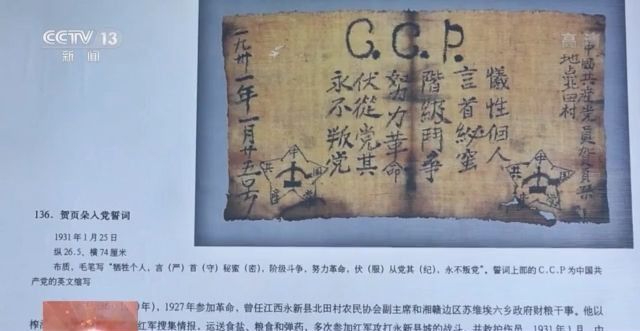 CCTV 13
新闻
高清
C.C.P.
中國共産党員
地點北田村
犧牲個人
言首秘蜜
階級鬥争
努力革命
伏從党其
永不叛党
一九卅一年一月廿五号
136. 贺页朵入党誓词
1931 年 1 月 25 日
纵 26.5，横 74 厘米
布质，毛笔写“牺牲个人，言（严）首（守）秘蜜（密），阶级斗争，努力革命，伏（服）从党其（纪），永不叛党”。誓词上部的 C.C.P 为中国共
产党的英文缩写
年），1927 年参加革命，曾任江西永新县北田村农民协会副主席和湘赣边区苏维埃六乡政府财粮干事。他以
红军搜集情报，运送食盐、粮食和弹药，多次参加红军攻打永新县城的战斗，共救护伤员